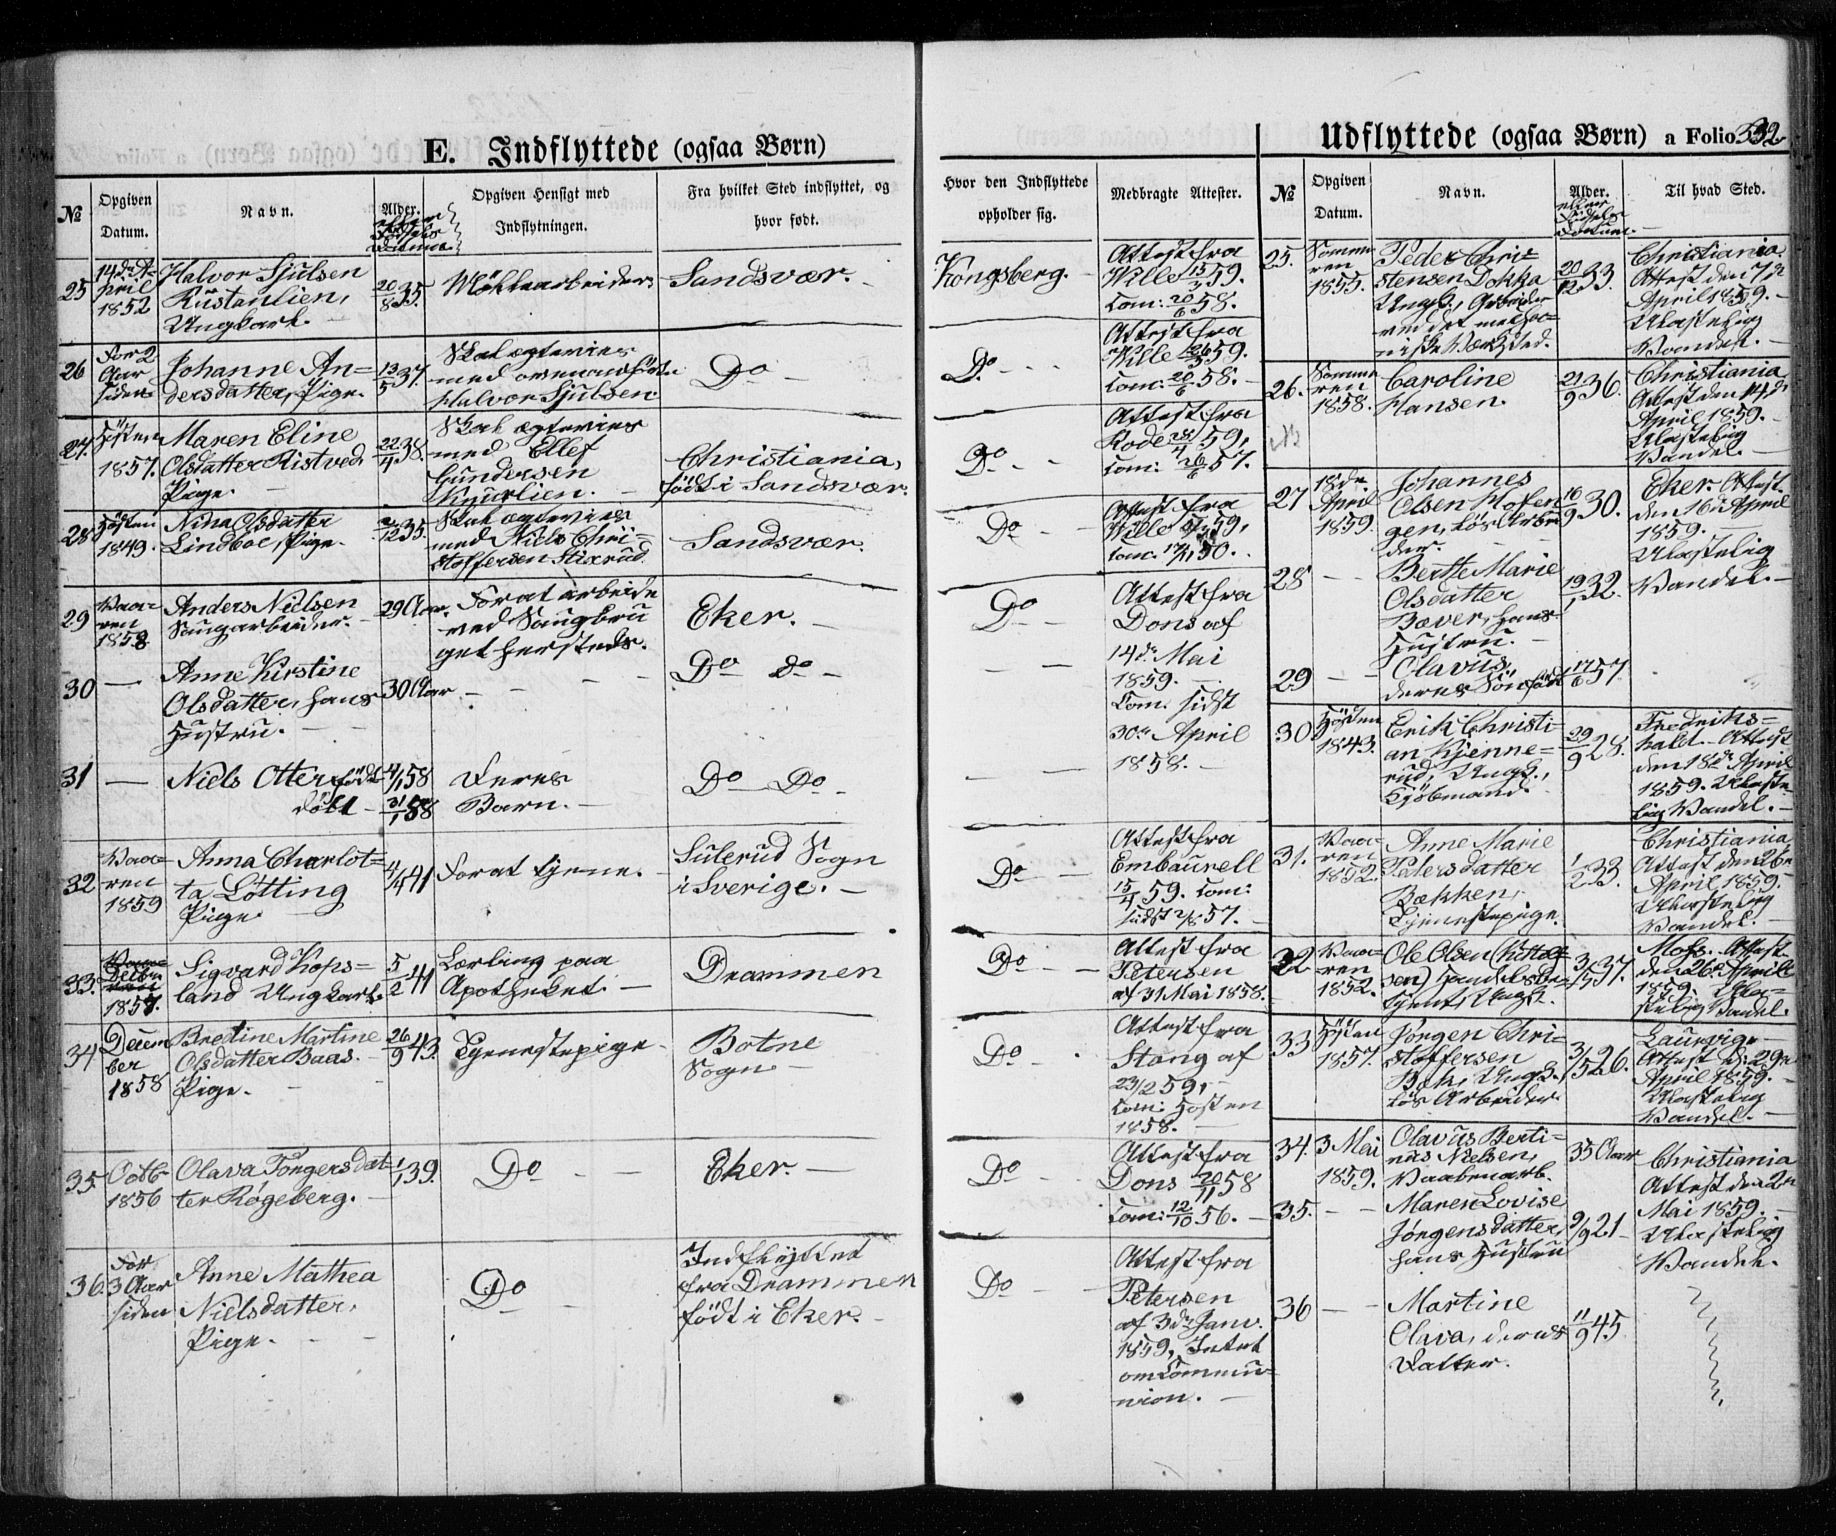 E. Indflyttede (ogsaa Børn)
№
Opgiven Datum.
Navn.
Alder.
eller Fødsels Datum
Opgiven Hensigt med Indflytningen.
Fra hvilket Sted indflyttet, og hvor født.
Hvor den Indflyttede opholder sig.
Medbragte Attester.
25
14de April 1852
Halvor Sjulsen
Rustanlien,
Ungkarl.
20/8 35
Möllearbeider
Sandsvær.
Kongsberg.
Attest fra
Wille 15/3 59.
Com: 20/6 58.
26
For 2 Aar siden
Johanne An-
dersdatter, Pige.
12/5 37.
Skal ægtevies
med ovenanførte
Halvor Sjulsen
Do
Do
Attest fra
Wille 26/3 59.
Com: 20/6 58.
27.
Høsten 1857.
Maren Eline
Olsdatter Ristved,
Pige.
22/4 38.
Skal ægtevies
med Ellef
Gundersen
Christiania,
født i Sandsvær.
Do
Attest fra
Rode 28/4 59,
Com: 26/6 57.
28
Høsten 1849.
Nina Olsdatter
Lindboe, Pige.
2/12 35.
Skal ægtevies
med Niels Chri-
stoffersen Stixrud
Sandsvær.
Do
Attest fra
Wille 59,
Com: 17/11 50.
29
Vaaren 1858
Anders Nielsen
Saugarbeider.
29 Aar
For at arbeide
ved Saugbru
get hersteds.
Eker.
Do
Attest fra
Dons af
14de Mai
1859.
Com. sidst
30te April
1858.
30
Anne Kirstine
Olsdatter, hans
Hustru.
30 Aar
Do do
31
Niels Otter født
døbt
4/1 58
31/1 58
Deres
Barn.
Do Do
32
Vaaren 1859
Anna Charlot-
ta Lötting
Pige
4/4 41
For at tjene.
Sulerud Sogn
i Sverige.
Do
Attest fra
Embaurell
15/4 59. Com:
sidst 2/6 57.
33.
1857.
Sigvard Kops-
land Ungkarl.
5/2 41
Lærling paa
Apotheket.
Drammen
Do
Attest fra
Petersen
af 31 Mai 1858.
34
December 1858
Bredine Martine
Olsdatter Baas.
Pige.
26/9 43.
Tjenestepige.
Botne
Sogn
Do
Attest fra
Stang af
23/2 59,
Com: Høsten
1858.
35
Octb. 1856
Olava Torgersdat-
ter Røgeberg.
1/1 39.
Do
Eker.
Do
Attest fra
Dons 20/11 58
Com: 12/10 56.
36.
For 3 Aar siden
Anne Mathea
Nielsdatter,
Pige.
Do
Indflyttet
fra Drammen
født i Eker.
Do
Attest fra
Petersen
af 3de Janv.
1859, Intet
om Commu-
nion.
Udflyttede (ogsaa Børn) a Folio 332
№
Opgiven Datum.
Navn.
Alder.
eller Fødsels Datum.
Til hvad Sted.
25.
Sommeren 1855.
Peder Chri-
stensen Dokka
Ungk., Arbeider
ved det mecha-
niske Værksted.
20/12 33.
Christiania.
Attest den 7de
April 1859.
Ulastelig
Vandel.
26.
Sommeren 1858.
Caroline
Hansen.
21/9 36.
Christiania
Attest den 14de
April 1859.
Ulastelig
Vandel.
27
18de April 1859.
Johannes
Olsen Hoffen
gen, løs Arbei
der.
16/9 30.
Eker. Attest
den 16de April
1859.
Ulastelig
Vandel.
28
Berthe Marie
Olsdatter
Bæver, hans
Hustru.
19/1 32.
29
Olavus
deres Søn født
17/6 57.
30
Høsten 1843.
Erik Christi-
an Kjenne-
rud, Ungk.,
Kjøbmand.
29/9 28.
Fredriks-
hald. Attest
den 18de April
1859. Ulaste
lig Vandel.
31.
Vaaren 1852.
Anne Marie
Pedersdatter
Bækken,
Tjenestepige.
1/2 33.
Christiania
Attest den 26de
April 1859.
Ulastelig
Vandel.
32
Vaaren 1852.
Ole Olsen (Kittel
sen) Handelsbe-
tjent, Ungk.
3/5 37.
Moss. Attest
den 26de April
1859. Ula-
stelig Vandel.
33
Høsten 1857.
Jørgen Chri-
stoffersen
Bek, Ungk.,
løs Arbeider
3/5 26.
Laurvig.
Attest d: 29de
April 1859.
Ulastelig
Vandel.
34.
3 Mai 1859.
Olavus Berti-
nus Nielsen,
Vaabenarb.
35 Aar
Christiania
Attest den 2den
Mai 1859.
Ulastelig
Vandel.
35.
Maren Lovise
Jørgensdatter,
hans Hustru
9/9 21
36
Martine
Olava, deres
Datter.
11/9 45.